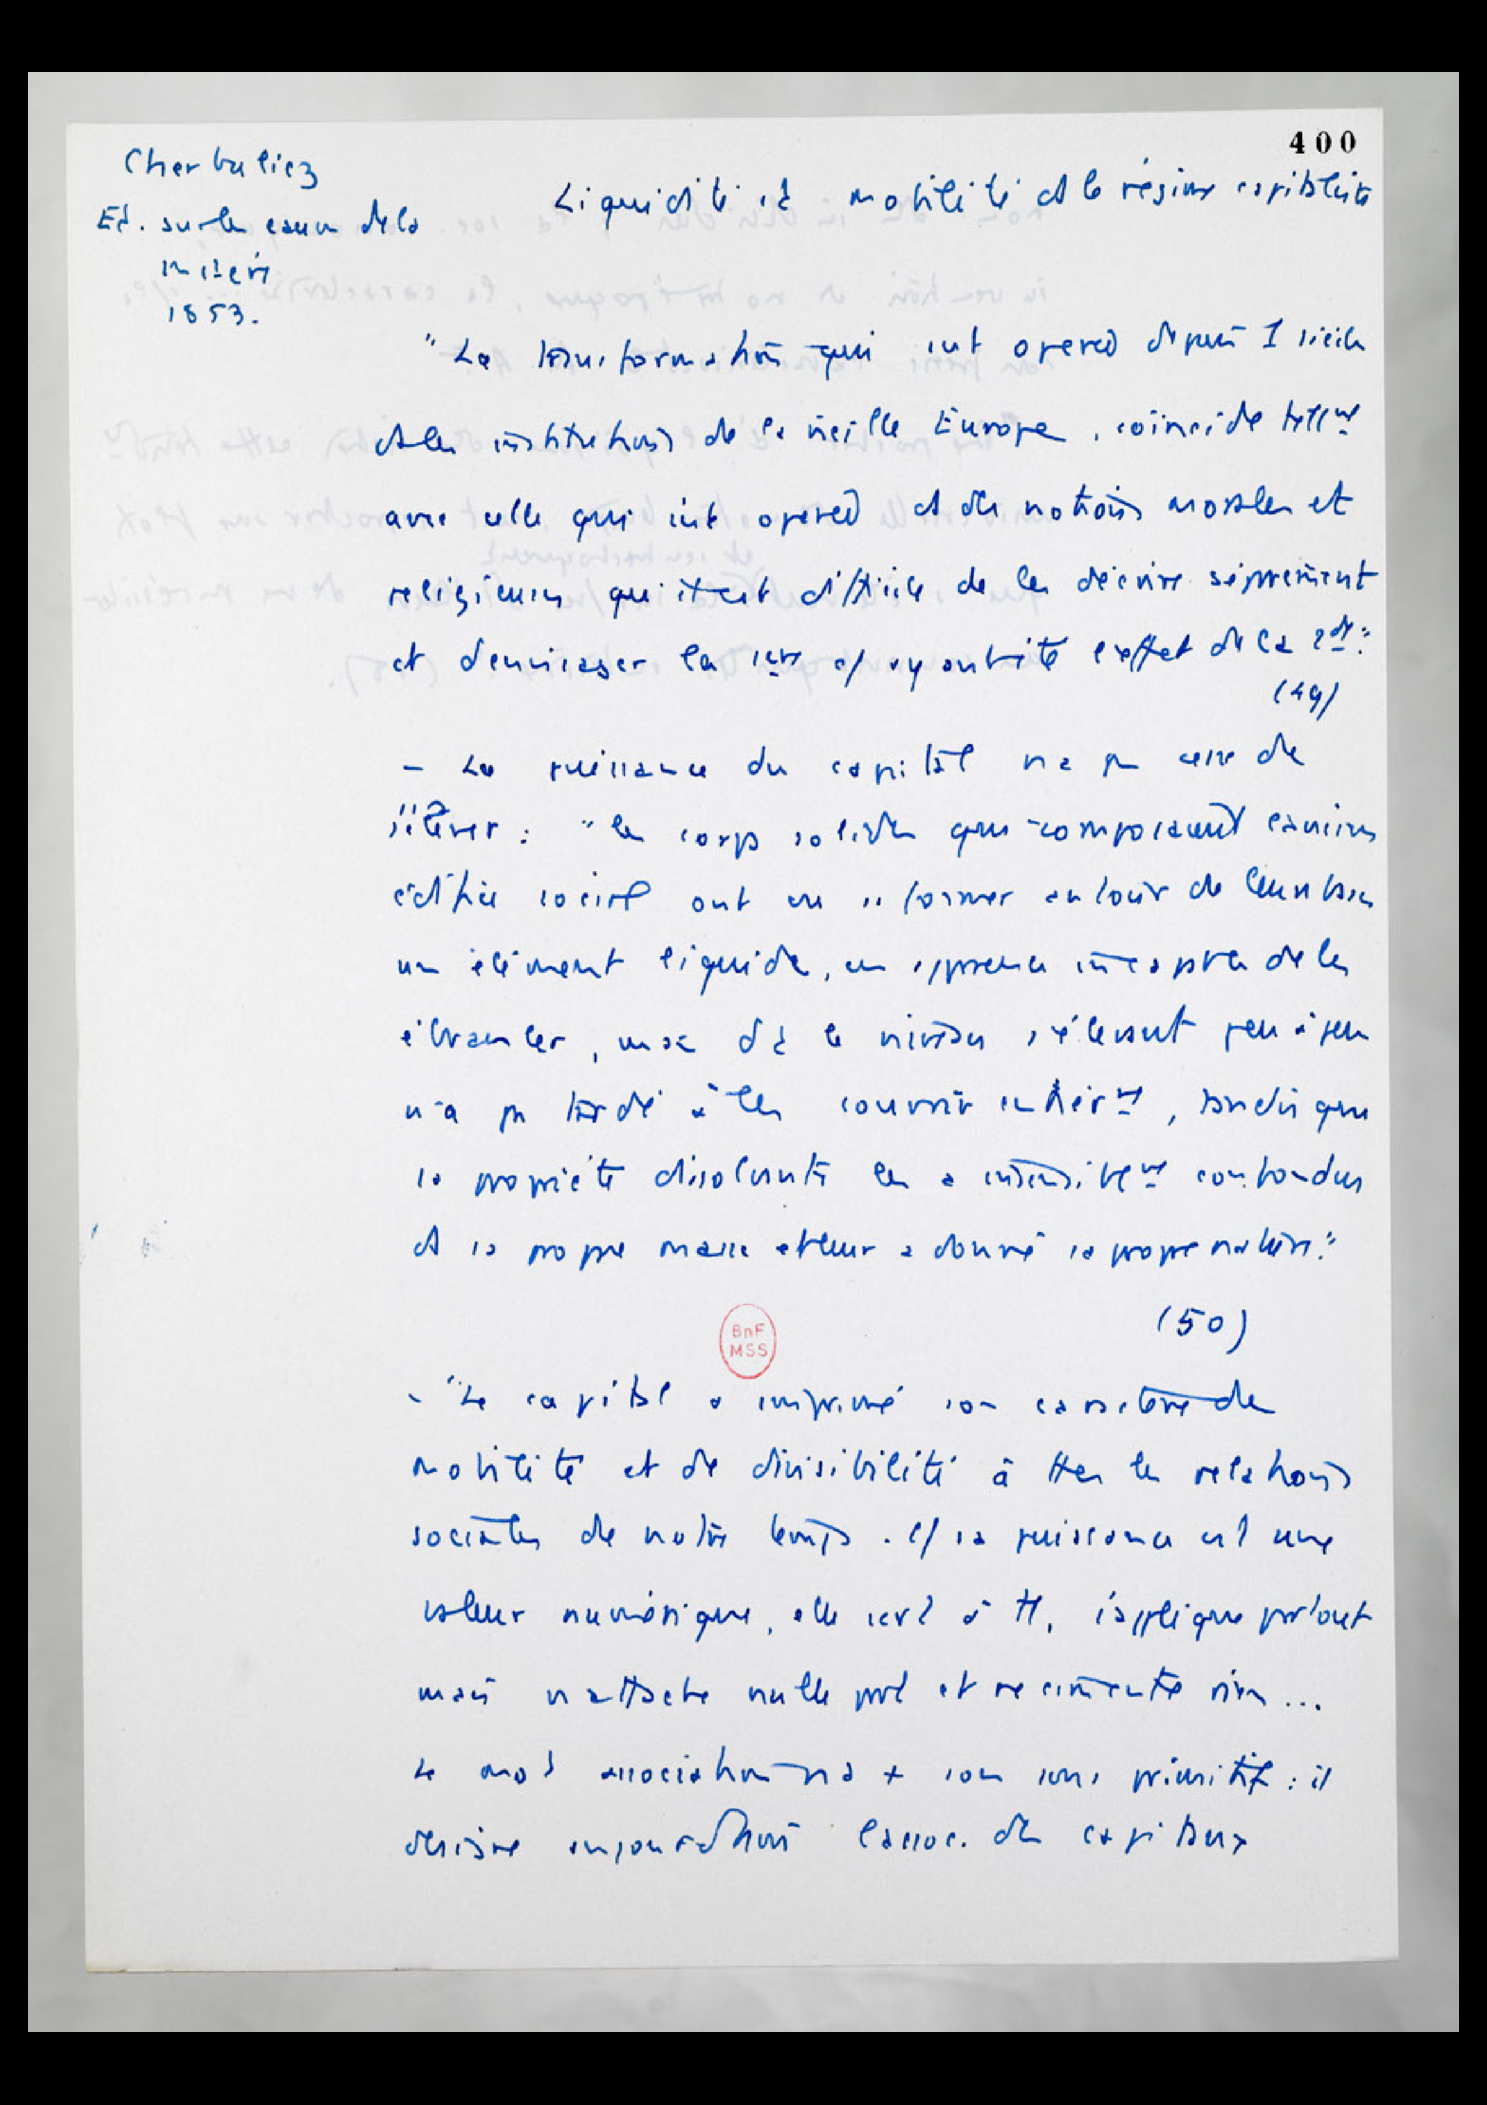 400
Cherbuliez
Et. sur les causes de la
misère
1853.
Liquidité et mobilité ds le régime capitaliste
"La transformation qui s'est opérée depuis 1 siècle
ds les institutions de la vieille Europe, coïncide tellmt
avec celle qui s'est opérée ds les notions morales et
religieuses qu'il est difficile de les décrire séparément
et d'envisager la 1ère c/ ayant été l'effet de la 2de."
(49)
- La puissance du capital n'a pas cessé de
s'élever : "les corps solides qui composaient l'ancien
édifice social ont vu se former autour de leurs bases
un élément liquide, en apparence incapable de les
ébranler, mais dt le niveau s'élevant peu à peu
n'a pas tardé à les couvrir entièrmt, tandis que
sa propriété dissolvante les a insensiblemt confondus
ds sa propre masse et leur a donné sa propre nature."
(50)
BnF
MSS
- "Le capital a imprimé son caractère de
mobilité et de divisibilité à ttes les relations
sociales de notre temps. C/ sa puissance est une
valeur numérique, elle sert à tt, s'applique partout
mais n'attache nulle part et ne cimente rien ...
Le mot association n'a + son sens primitif : il
désigne aujourd'hui l'assoc. des capitaux